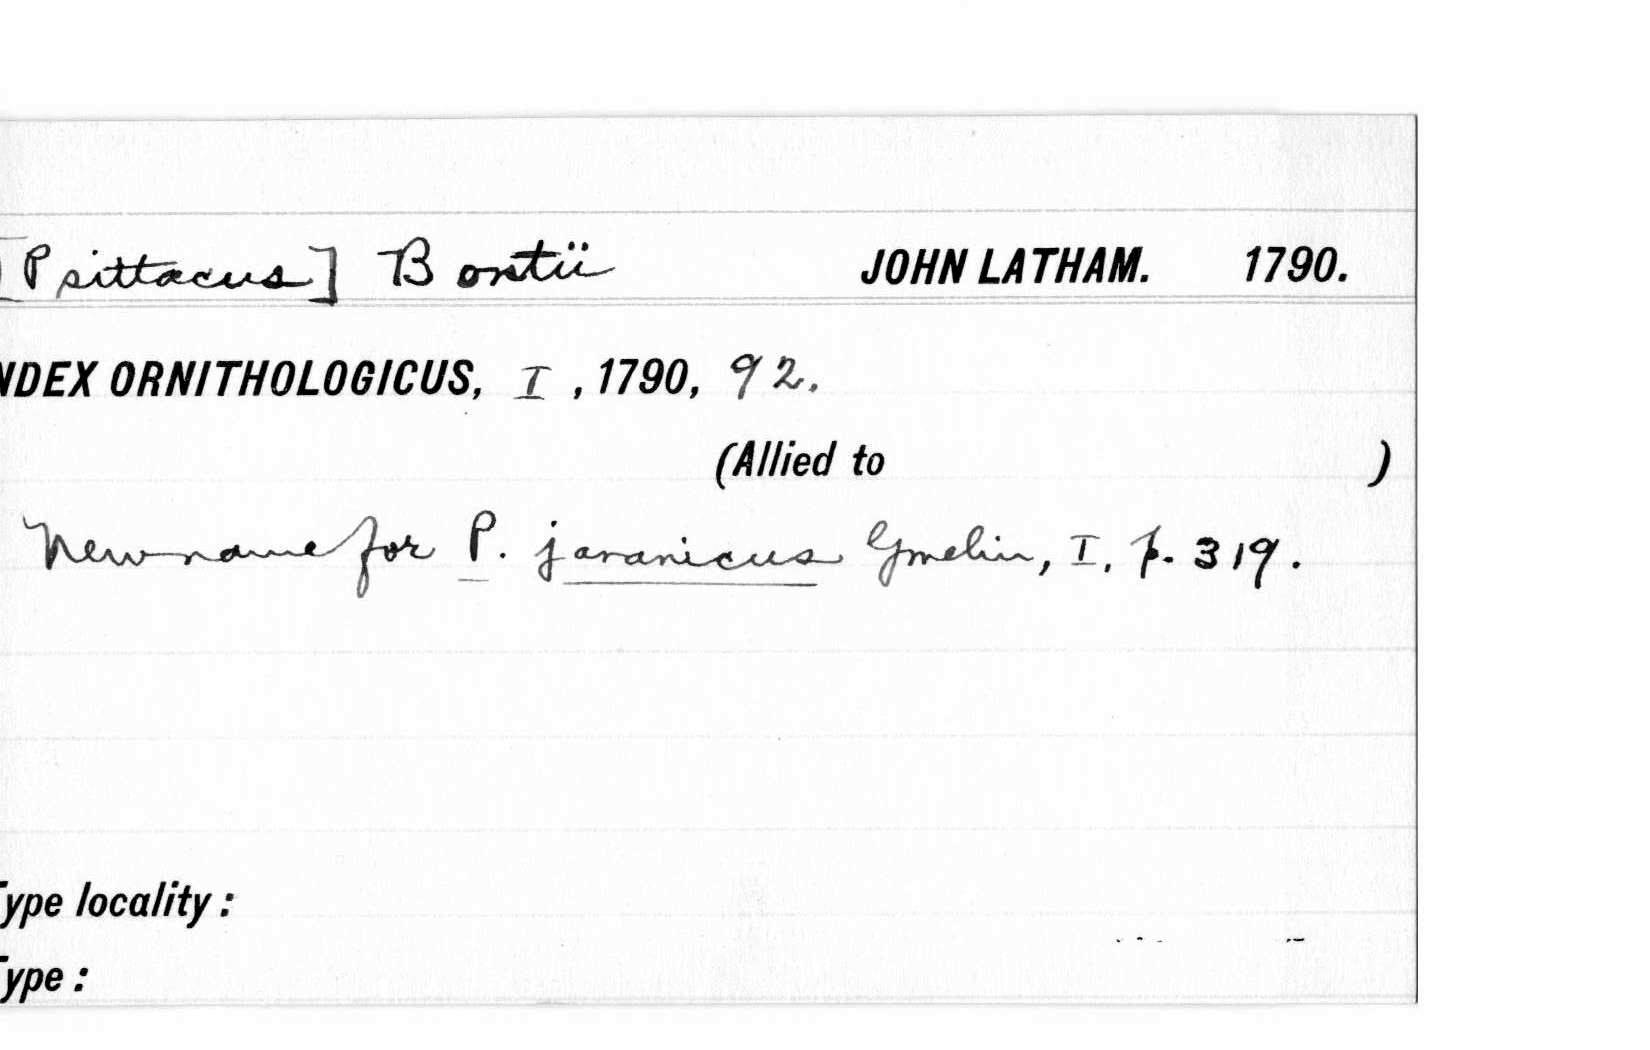 [Psittacus] Bontii JOHN LATHAM. 1790.
NDEX ORNITHOLOGICUS, I, 1790, 92.
(Allied to )
New name for P. javanicus Gmelin, I, p. 319.
Type locality:
Type: